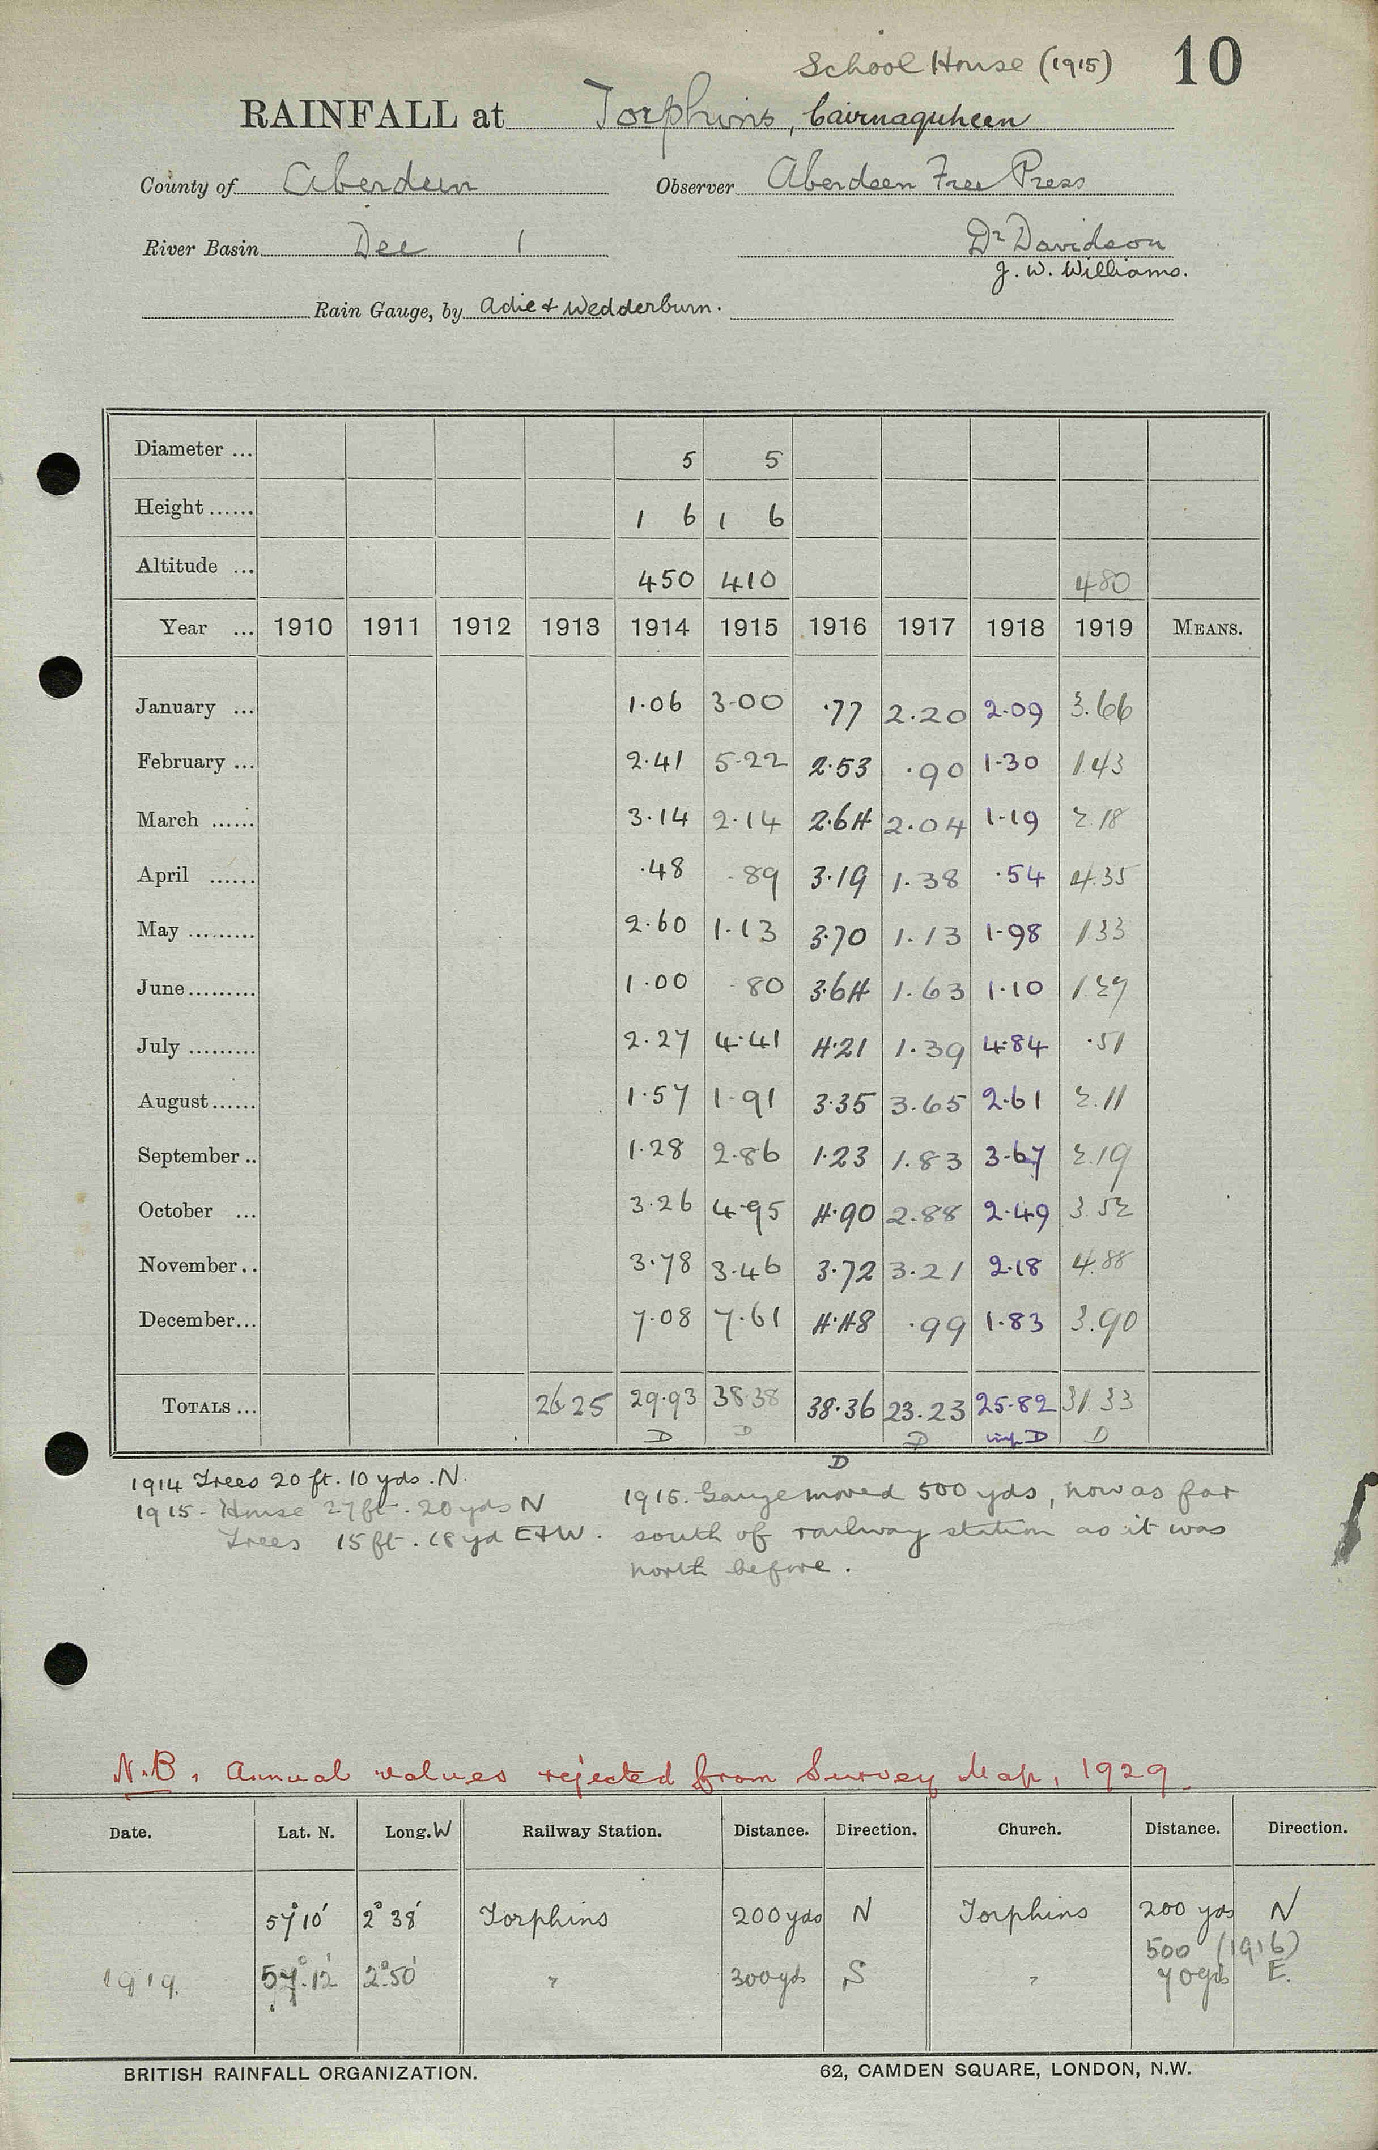 School House (1915) 10
RAINFALL at Torphins, Cairnaquheen
County of Aberdeen Observer Aberdeen Free Press
River Basin Dee 1 Dr Davidson
J. W. Williams.
Rain Gauge, by Adie & Wedderburn.
Diameter ... 5 5
Height ...... 1 6 1 6
Altitude ... 450 410 480
Year ... 1910 1911 1912 1913 1914 1915 1916 1917 1918 1919 MEANS.
January ... 1.06 3.00 .77 2.20 2.09 3.66
February ... 2.41 5.22 2.53 .90 1.30 1.43
March ...... 3.14 2.14 2.64 2.04 1.19 2.18
April ...... .48 .89 3.19 1.38 .54 4.35
May ......... 2.60 1.13 3.70 1.13 1.98 1.33
June......... 1.00 .80 3.64 1.63 1.10 1.27
July ......... 2.27 4.41 4.21 1.39 4.84 .51
August...... 1.57 1.91 3.35 3.65 2.61 2.11
September.. 1.28 2.86 1.23 1.83 3.67 2.19
October ... 3.26 4.95 4.90 2.88 2.49 3.52
November.. 3.78 3.46 3.72 3.21 2.18 4.88
December... 7.08 7.61 4.48 .99 1.83 3.90
TOTALS ... 26.25 29.93 38.38 38.36 23.23 25.82 31.33
D D D D imp. D D
1914 Trees 20 ft. 10 yds. N.
1915 - House 27 ft. 20 yds N
Trees 15 ft. 18 yd E & W.
1915. Gauge moved 500 yds, now as far
south of railway station as it was
north before.
N.B. Annual values rejected from Survey Map, 1929.
Date. Lat. N. Long. W Railway Station. Distance. Direction. Church. Distance. Direction.
57° 10' 2° 38' Torphins 200 yds N Torphins 200 yds N
500 (1916)
1919. 57° 12' 2° 50' " 300 yds S " 70 yds E.
BRITISH RAINFALL ORGANIZATION. 62, CAMDEN SQUARE, LONDON, N.W.